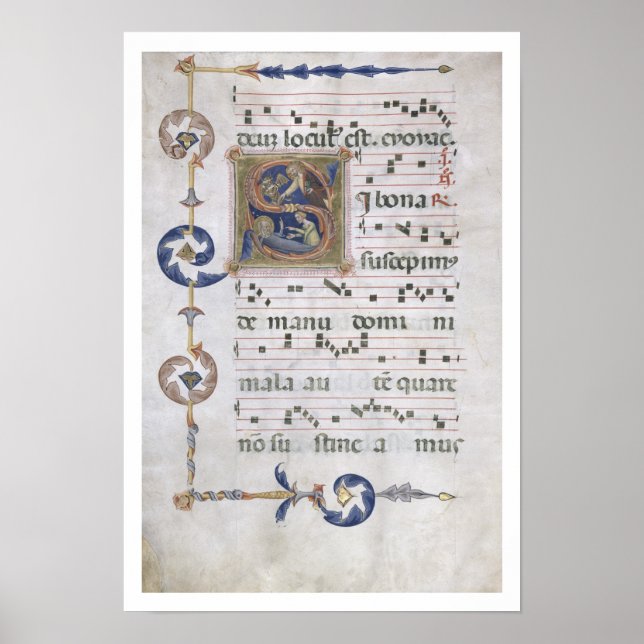 deuz locut᷒ est. evovae.
Si bona R.
suscepim᷒
de manu domini
mala au tē quare
nō su stine a mus